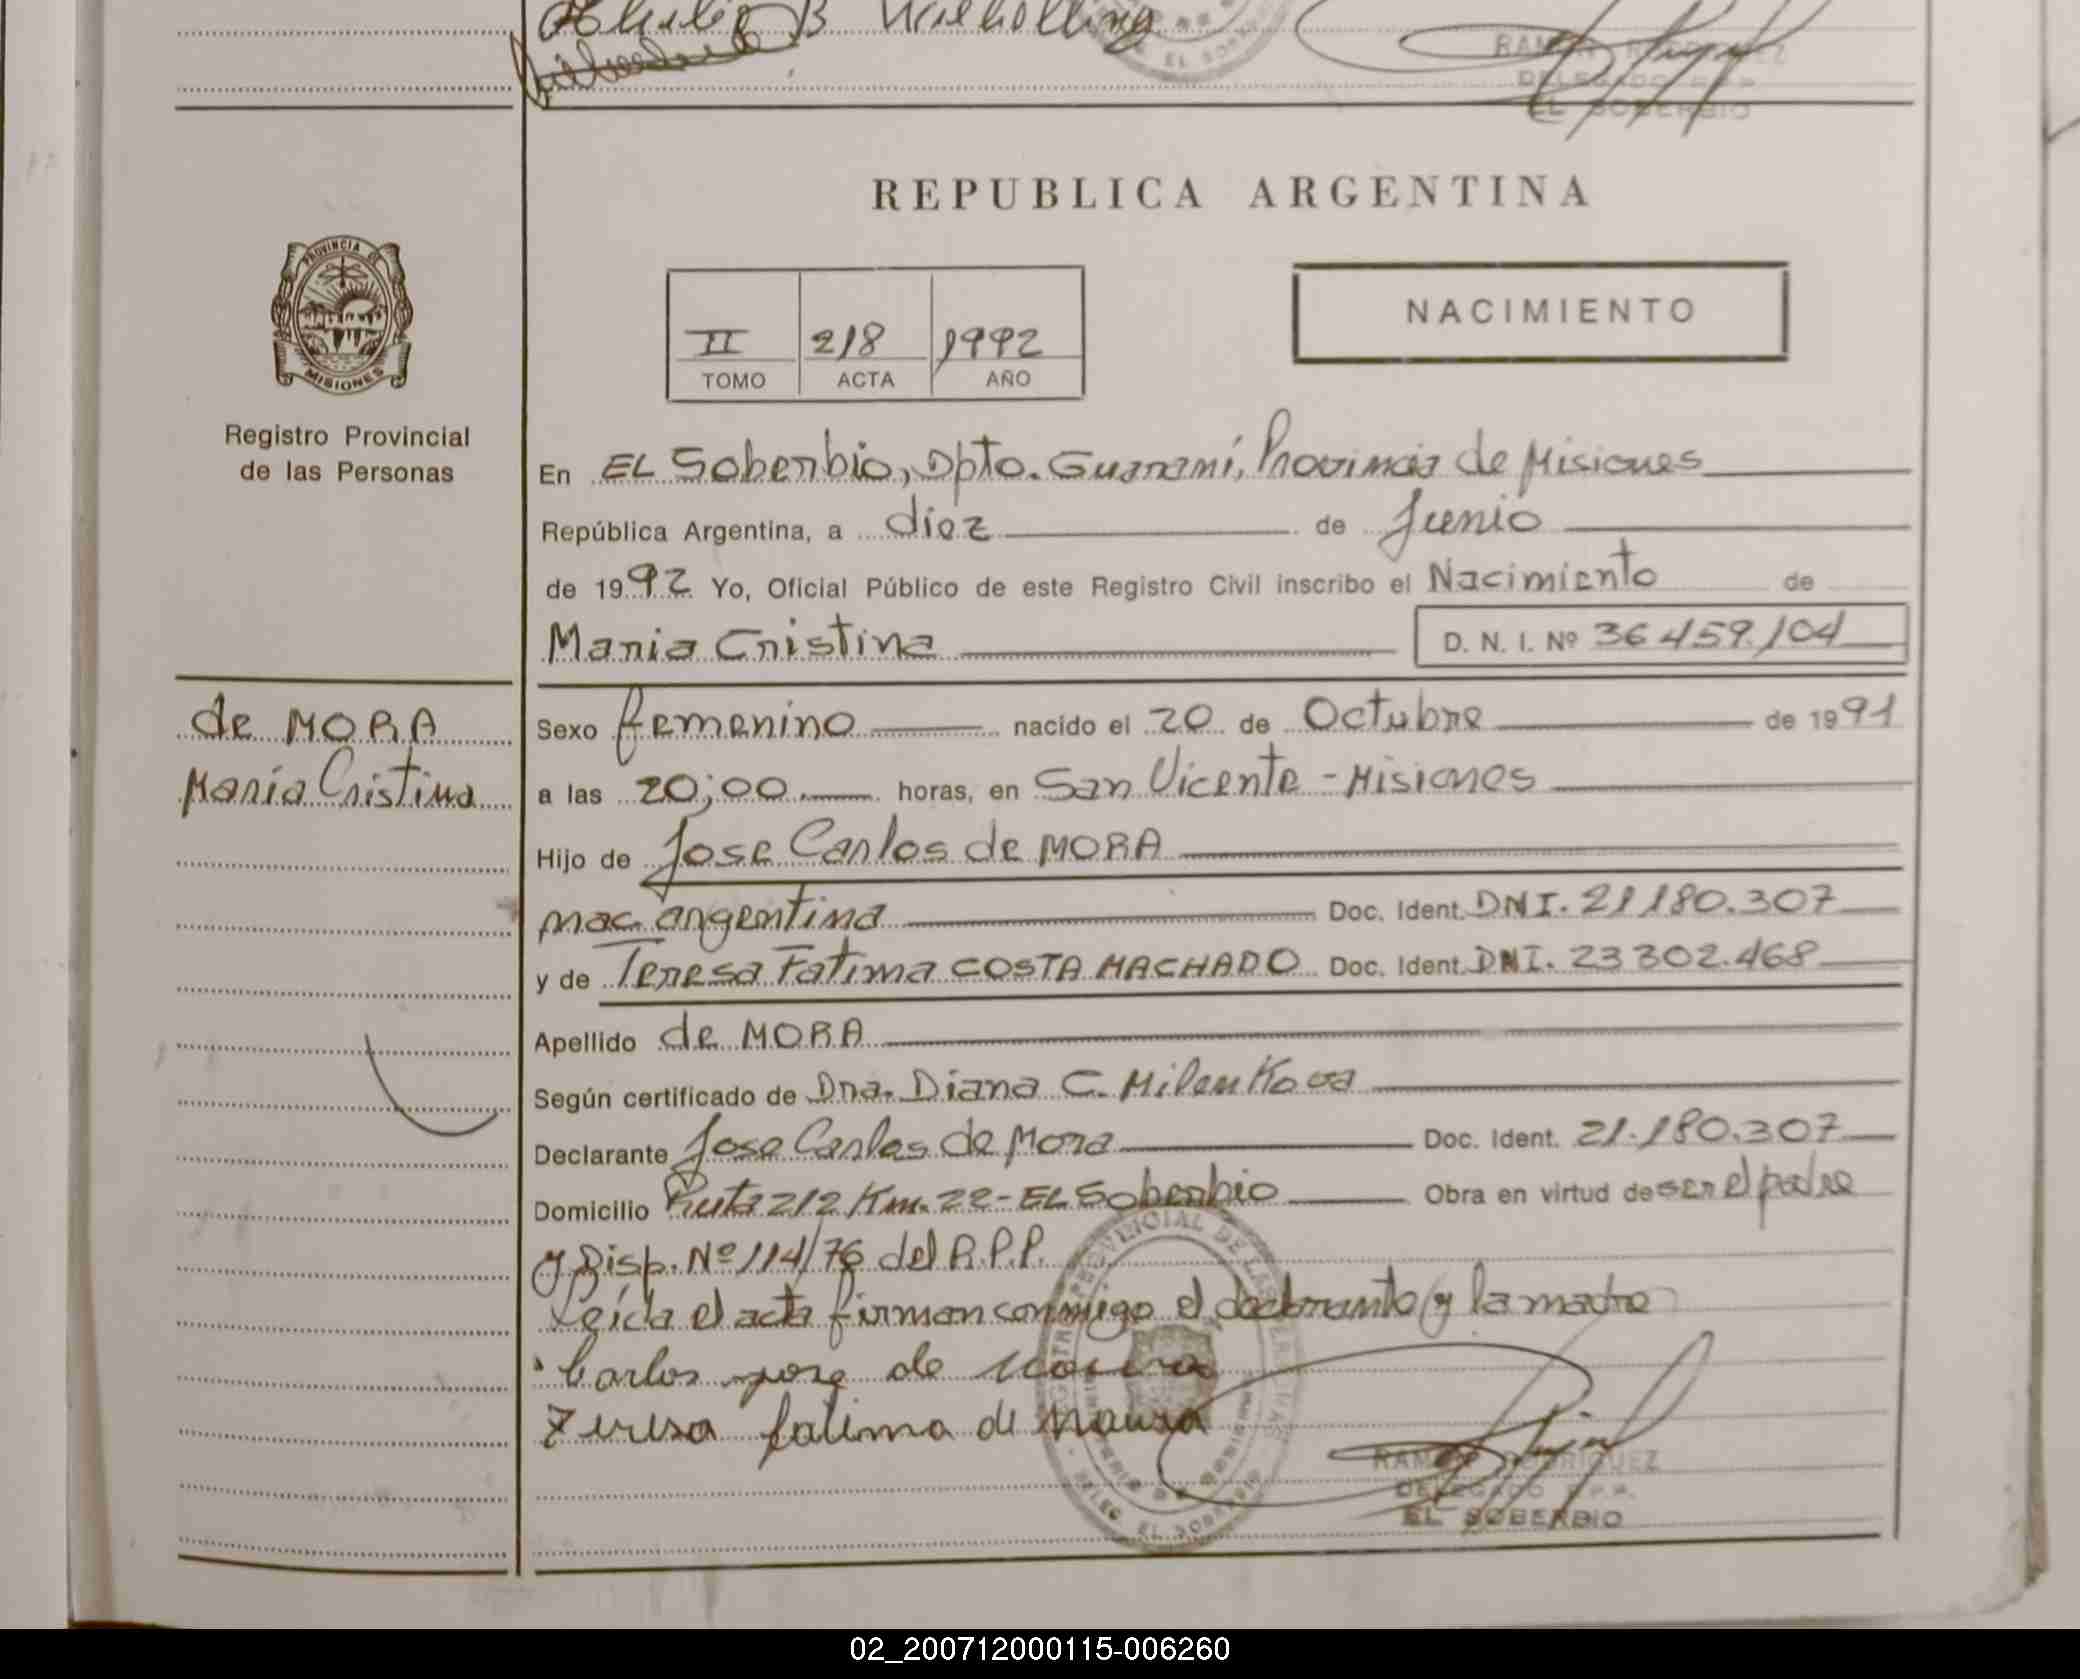 RAMON RODRIGUEZ
DELEGADO R.P.P.
EL SOBERBIO
REPUBLICA ARGENTINA
PROVINCIA DE
MISIONES
Registro Provincial
de las Personas
II 218 1992
TOMO ACTA AÑO
NACIMIENTO
En EL Soberbio, Dpto. Guaraní, Provincia de Misiones
República Argentina, a diez de Junio
de 1992 Yo, Oficial Público de este Registro Civil inscribo el Nacimiento de
Maria Cristina D. N. I. Nº 36459.104
de MORA
María Cristina
Sexo femenino nacido el 20 de Octubre de 1991
a las 20;00 horas, en San Vicente - Misiones
Hijo de Jose Carlos de MORA
nac. argentina Doc. Ident. DNI. 21180.307
y de Teresa Fatima COSTA MACHADO Doc. Ident. DNI. 23302.468
Apellido de MORA
Según certificado de Dra. Diana C. Milenkova
Declarante Jose Carlos de Mora Doc. Ident. 21.180.307
Domicilio Ruta 212 Km. 22 - EL Soberbio Obra en virtud de ser el padre
y Disp. Nº 114/76 del R.P.P.
Leída el acta firman conmigo el declarante y la madre
Carlos jose de
Teresa fatima de
RAMON RODRIGUEZ
DELEGADO R.P.P.
EL SOBERBIO
02_200712000115-006260